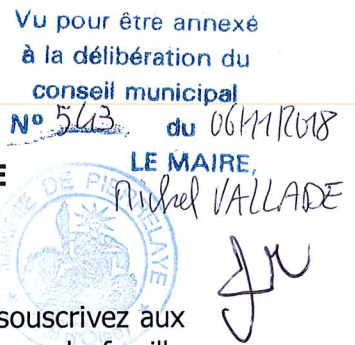 Vu pour être annexé
à la délibération du
conseil municipal
N° 543 du 06/11/2018
LE MAIRE,
E
Michel VALLADE
DE PIERRELAYE
souscrivez aux